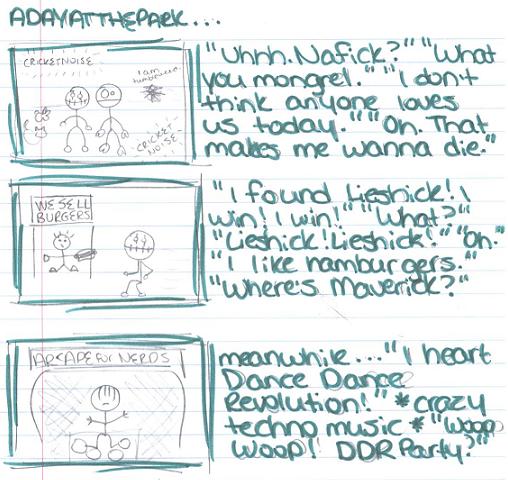 ADAYATTHEPARK...
CRICKETNOISE
I am
tumbleweed
-CRICKET
NOISE-
"Uhhh. Nafick?" "What
you mongrel." "I don't
think anyone loves
us today." "Oh. That
makes me wanna die."
WE SELL
BURGERS
"I found Lieshick! I
win! I win!" "What?"
"Lieshick! Lieshick!" "Oh."
"I like hamburgers."
"Where's Maverick?"
ARCADE for NERDS
meanwhile... "I heart
Dance Dance
Revolution!" *crazy
techno music* "Woop
Woop! DDR Party?"